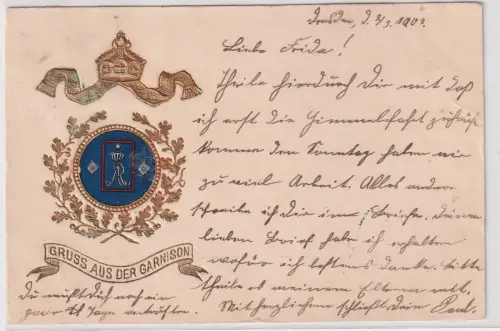 Dresden, d. 8/5. 1901.
Liebe Frida!
Theile hierdurch Dir mit daß
ich erst die Himmelfahrt zuhause
komme den Sonntag haben wir
zu viel Arbeit. Alles andere
schreibe ich Dir im Briefe. Deinen
lieben Brief habe ich erhalten
wofür ich bestens danke. bitte
theile es meinen Eltern mit.
Mit herzlichen schließt Dein Paul.
AR
GRUSS AUS DER GARNISON
Du mußt Dich noch ein
paar Tage